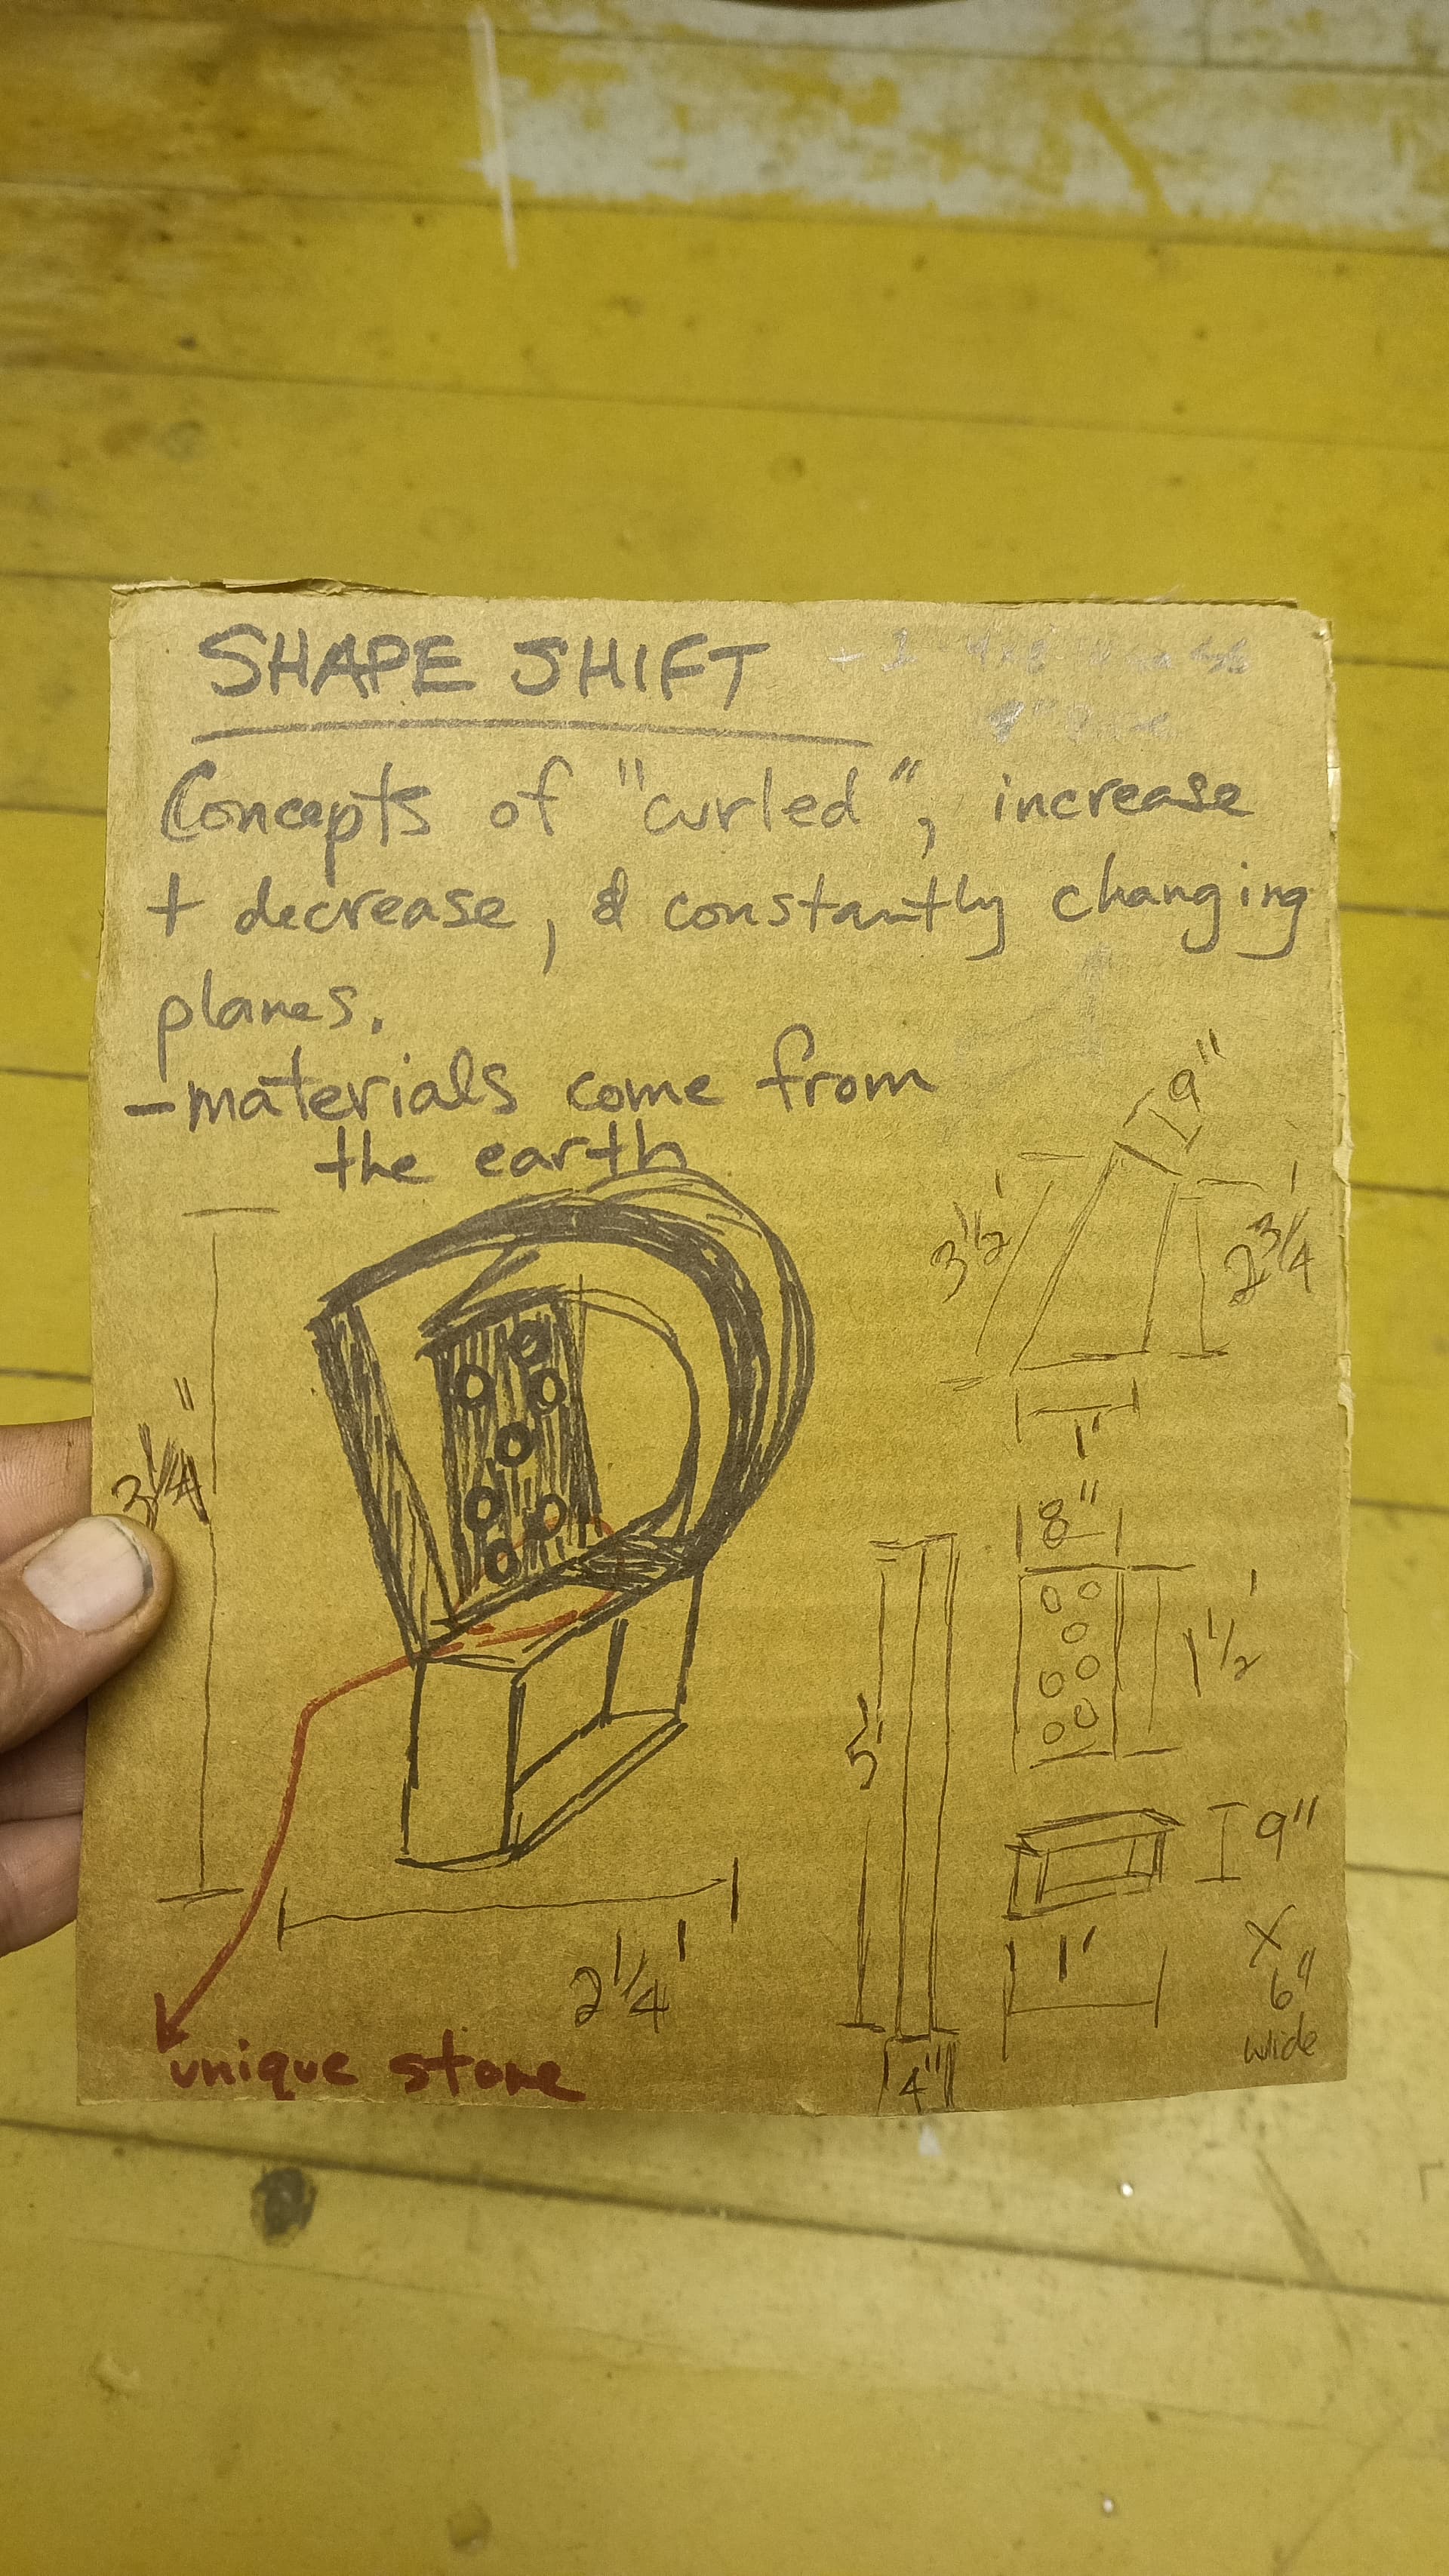 SHAPE SHIFT
Concepts of "curled", increase
+ decrease, & constantly changing
planes.
- materials come from
the earth
9"
3 1/2'
2 3/4'
1'
3 1/4"
8"
1 1/2'
5'
9"
1'
X
6"
wide
2 1/4'
4"
unique stone